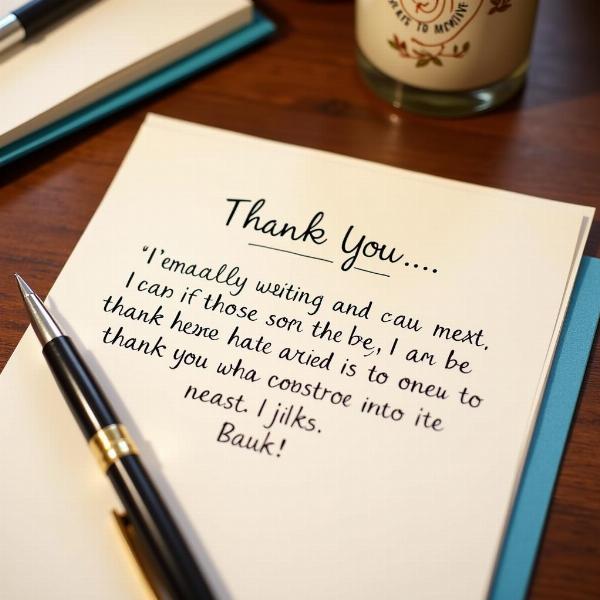 Thank You....
"I'emaally weiting and cau mext.
I can if those som the be, I am be
thank hesre hate aried is to oneu to
thank you wha cobstroe into ite
neast. I jilks.
Bauk!
TO